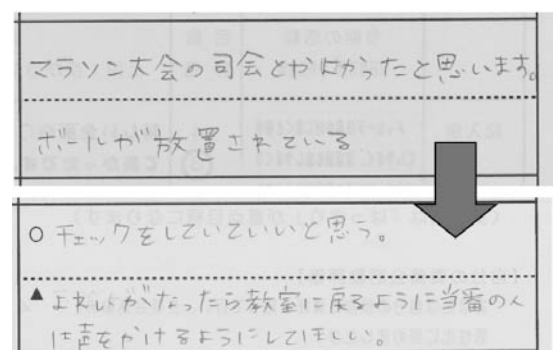 マラソン大会の司会とかよかったと思います。
ボールが放置されている
○ チェックをしていていいと思う。
▲ よれいがなったら教室に戻るように当番の人
は声をかけるようにしてほしい。